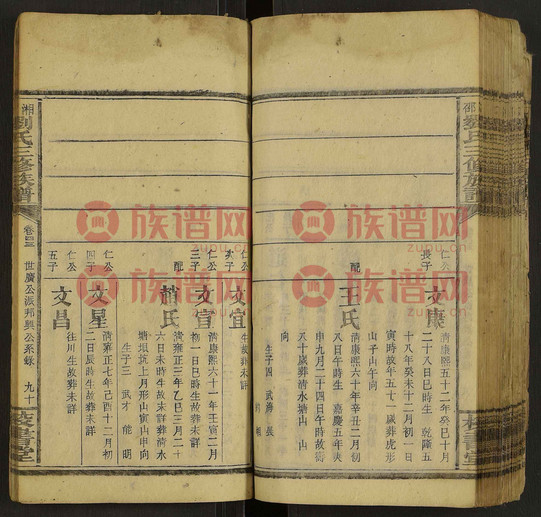 邵
劉氏三修族譜
仁公
長子
文康
清康熙五十二年癸巳十月
二十八日巳時生 乾隆五
十八年癸未十二月初一日
寅時故年五十一歲葬虎形
山子山午向
配
王氏
清康熙六十年辛丑二月初
八日午時生 嘉慶五年庚
申九月二十四日午時故
八十歲葬清水塘山
向
生子四 武
仁公
次子
文宜
生故葬未詳
仁公
三子
文宣
清康熙六十一年壬寅二月
初一日巳時生故葬未詳
配
趙氏
清雍正三年乙巳三月二十
六日未時生故未詳葬清水
塘垻坑上月形山寅山申向
生子三 武才 能 明
仁公
四子
文星
清雍正七年己酉十二月初
二日辰時生故葬未詳
仁公
五子
文昌
往川生故葬未詳
湘
劉氏三修族譜
世廣公派邦興公系錄
九十
族谱网
zupu.cn
族谱网
zupu.cn